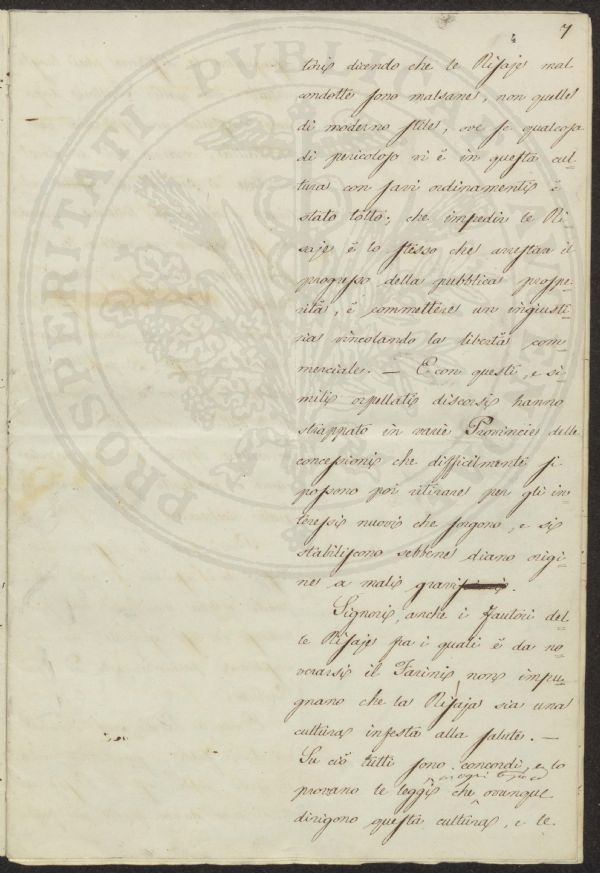 4 7
toris dicendo che le Risaje mal
condotte sono malsane, non quelle
di moderno stile, ove se qualcosa
di pericoloso vi è in questa cul=
tura con savi ordinamenti è
stato tolto; che impedir le Ri
saje è lo stesso che arrestar il
progresso della pubblica prospe=
rità, è commettere un ingiusti=
zia vincolando la libertà com=
merciale. — E con questi, e si=
mili orpellati discorsi hanno
strappato in varie Provincie delle
concessioni che difficilmente si
possono poi ritirare per gli in=
teressi nuovi che sorgono, e si
stabiliscono sebbene diano origi=
ne a mali gravi.
Signori, anche i fautori del=
le Risaje fra i quali è da no=
verarsi il Farini, non impu=
gnano che la Risaja sia una
cultura infesta alla salute. —
Su ciò tutti sono concordi, e lo
in ogni
provano le leggi che ovunque
dirigono questa cultura, e le
PROSPERITATI PUBLICAE